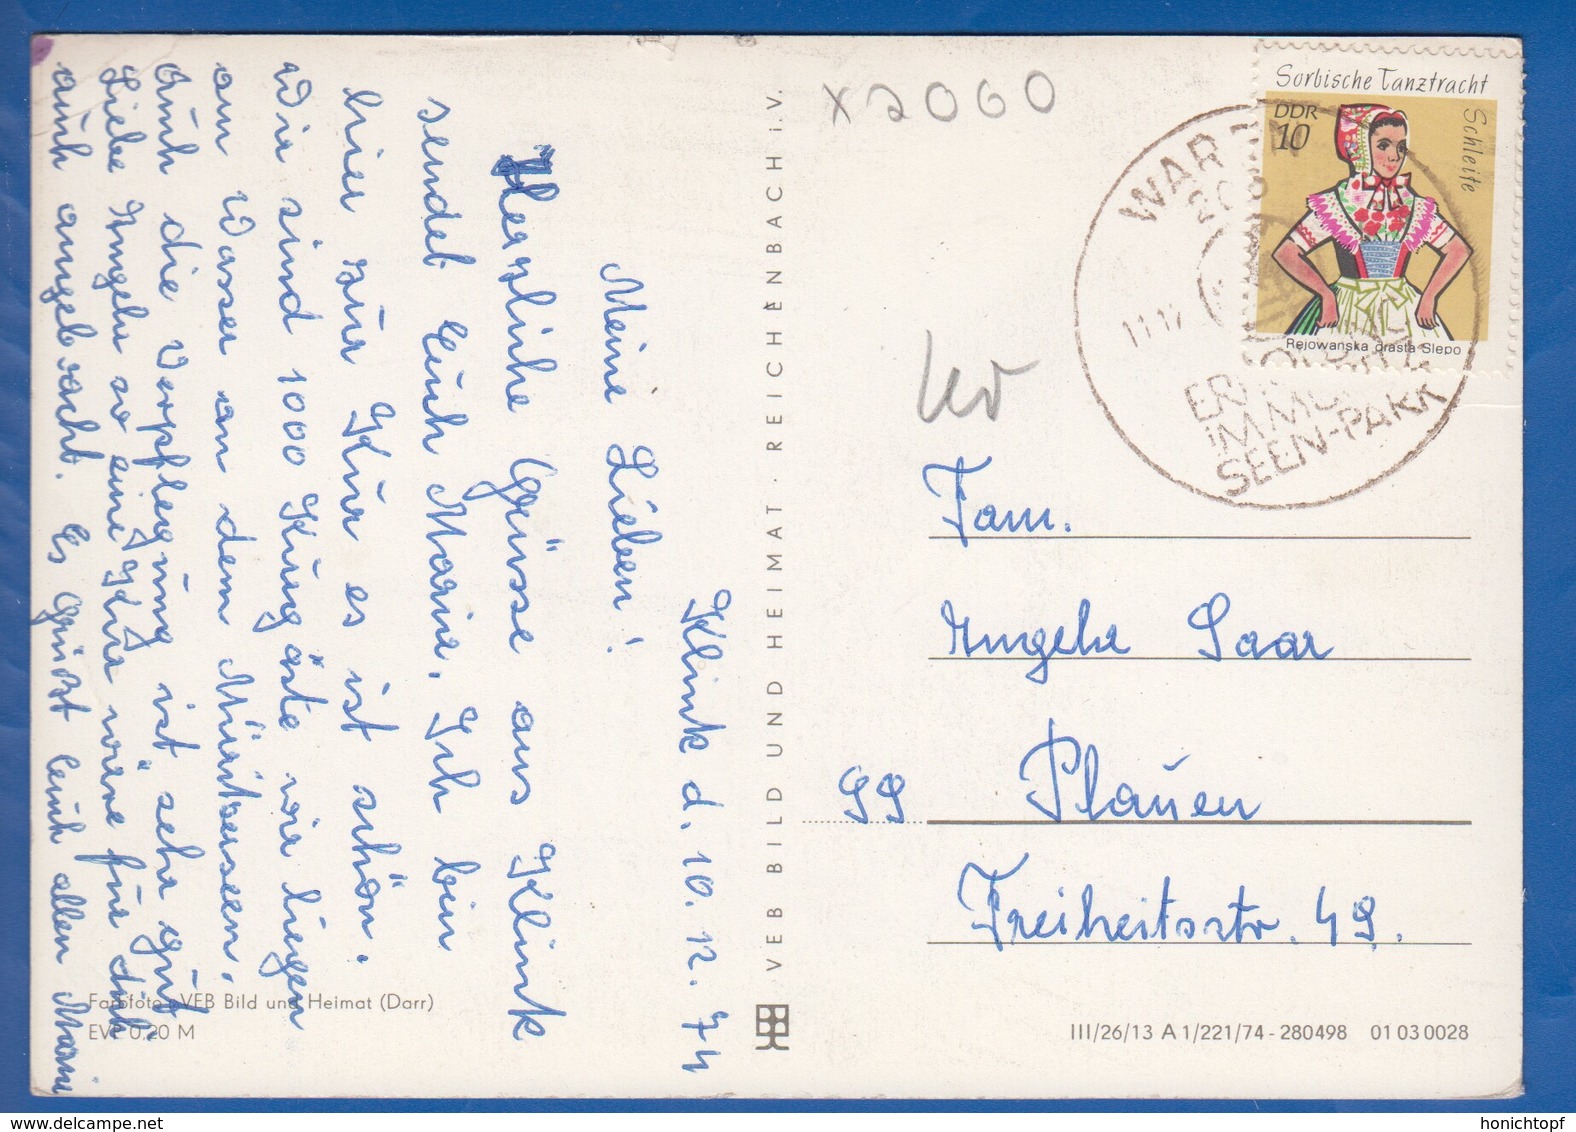 Klink d. 10. 12. 74
Meine Lieben!
Herzliche Grüsse aus Klink
sendet Euch Marie. Ich bin
hier zur Kur es ist schön.
Wir sind 1000 Kurgäste wir liegen
am Wasser an dem Müritzseen.
Auch die Verpflegung ist sehr gut.
Liebe Angela so eine Kur wäre für dich
auch angebracht. Es Grüsst Euch allen
VEB BILD UND HEIMAT · REICHENBACH i. V.
Farbfoto: VEB Bild und Heimat (Darr)
EVP 0,20 M
x2060
Sorbische Tanztracht
Schleife
DDR
10
Rejowanska drasta Slepo
WAREN
11.12
IM MÜRITZ
SEEN-PARK
Fam.
Angela Saar
99 Plauen
Freiheitsstr. 49.
III/26/13 A 1/221/74-280498 01 03 0028
honichtopf